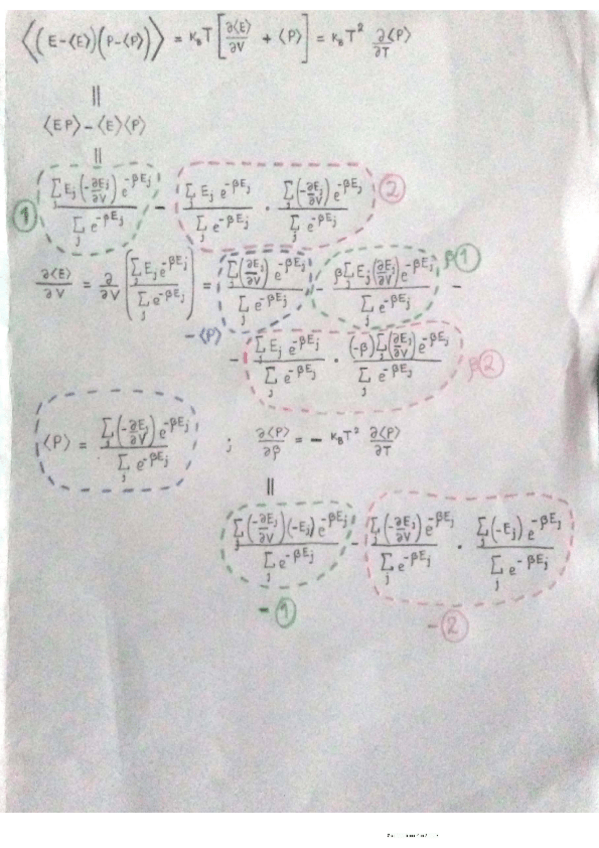 ⟨(E-⟨E⟩)(P-⟨P⟩)⟩ = K_B T [∂⟨E⟩/∂V + ⟨P⟩] = K_B T² ∂⟨P⟩/∂T
||
⟨EP⟩-⟨E⟩⟨P⟩
||
① ∑_j E_j (-∂E_j/∂V) e^{-βE_j} / ∑_j e^{-βE_j} - ∑_j E_j e^{-βE_j} / ∑_j e^{-βE_j} · ∑_j (-∂E_j/∂V) e^{-βE_j} / ∑_j e^{-βE_j} ②
∂⟨E⟩/∂V = ∂/∂V (∑_j E_j e^{-βE_j} / ∑_j e^{-βE_j}) = ∑_j (∂E_j/∂V) e^{-βE_j} / ∑_j e^{-βE_j} - β∑_j E_j (∂E_j/∂V) e^{-βE_j} / ∑_j e^{-βE_j} - β①
-⟨P⟩
- ∑_j E_j e^{-βE_j} / ∑_j e^{-βE_j} · (-β)∑_j (∂E_j/∂V) e^{-βE_j} / ∑_j e^{-βE_j} β②
⟨P⟩ = ∑_j (-∂E_j/∂V) e^{-βE_j} / ∑_j e^{-βE_j} ; ∂⟨P⟩/∂β = - K_B T² ∂⟨P⟩/∂T
||
∑_j (-∂E_j/∂V)(-E_j) e^{-βE_j} / ∑_j e^{-βE_j} - ∑_j (-∂E_j/∂V) e^{-βE_j} / ∑_j e^{-βE_j} · ∑_j (-E_j) e^{-βE_j} / ∑_j e^{-βE_j}
-① -②